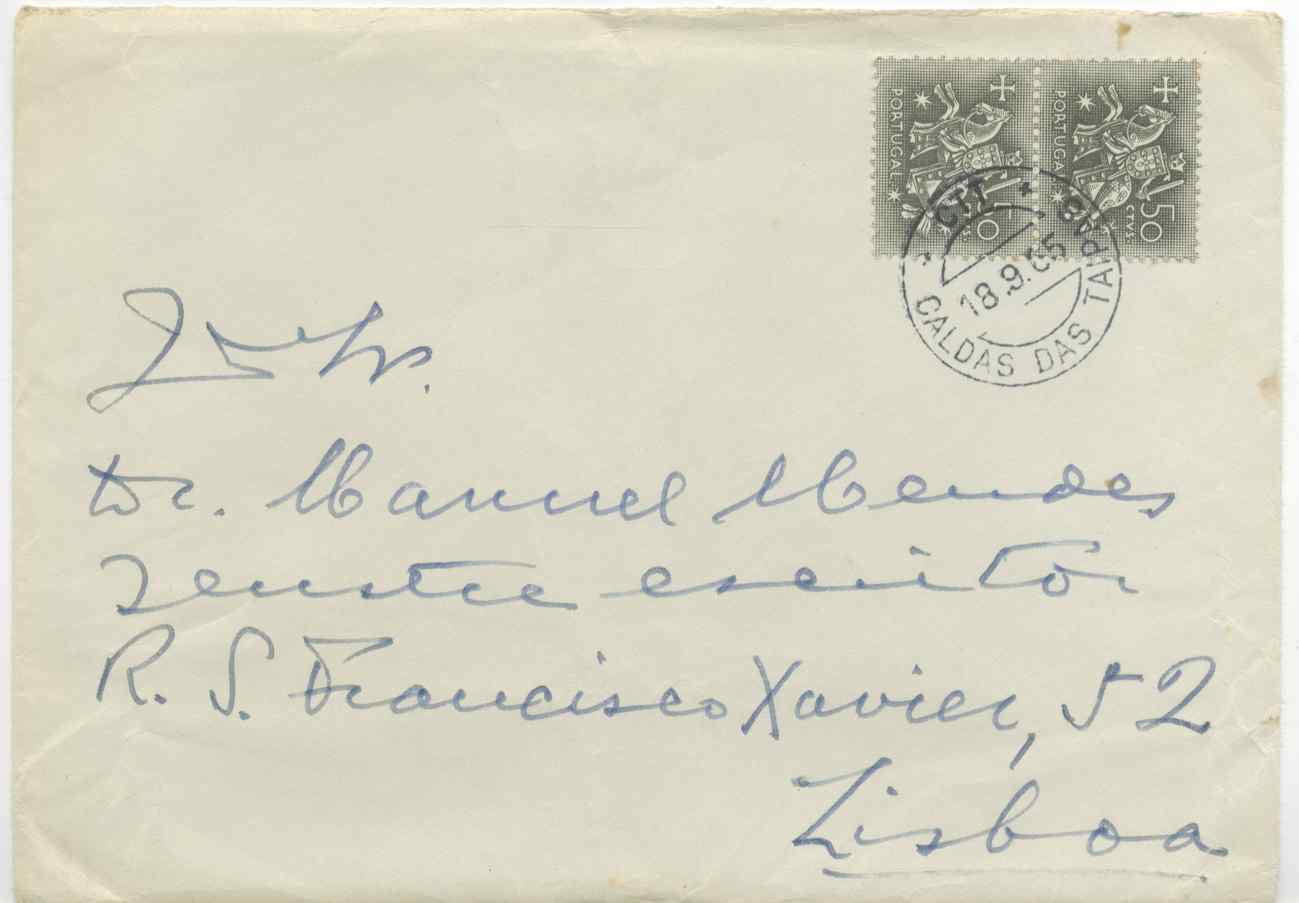 PORTUGAL
50
CTVS.
PORTUGAL
50
CTVS.
CTT
CALDAS DAS TAIPAS
18.9.65
Sr.
Dr. Manuel Mendes
Ilustre escritor
R. S. Francisco Xavier, 52
Lisboa